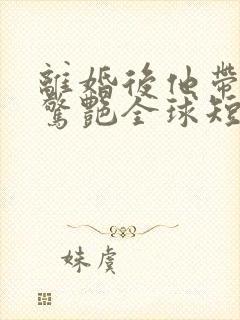 離婚後他帶
驚艷全球短
妹虞